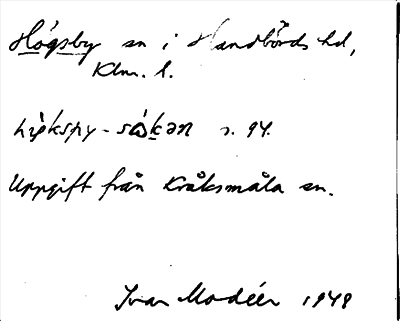 Högsby sn i Handbörds hd,
Klm. l.
s. 94.
Uppgift från Kråksmåla sn.
Ivar Modéer 1948